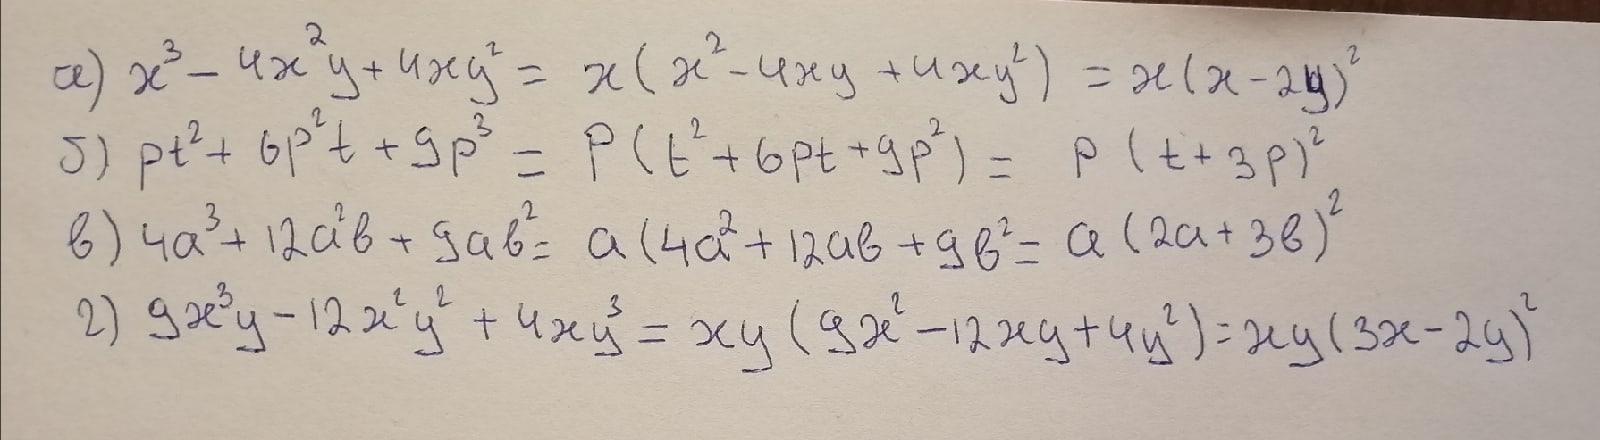 а) x³ - 4x²y + 4xy² = x(x² - 4xy + 4xy²) = x(x - 2y)²
б) pt² + 6p²t + 9p³ = P(t² + 6pt + 9p²) = P(t + 3p)²
в) 4a³ + 12a²b + 9ab² = a(4a² + 12ab + 9b² = a(2a + 3b)²
г) 9x³y - 12x²y² + 4xy³ = xy(9x² - 12xy + 4y²) = xy(3x - 2y)²